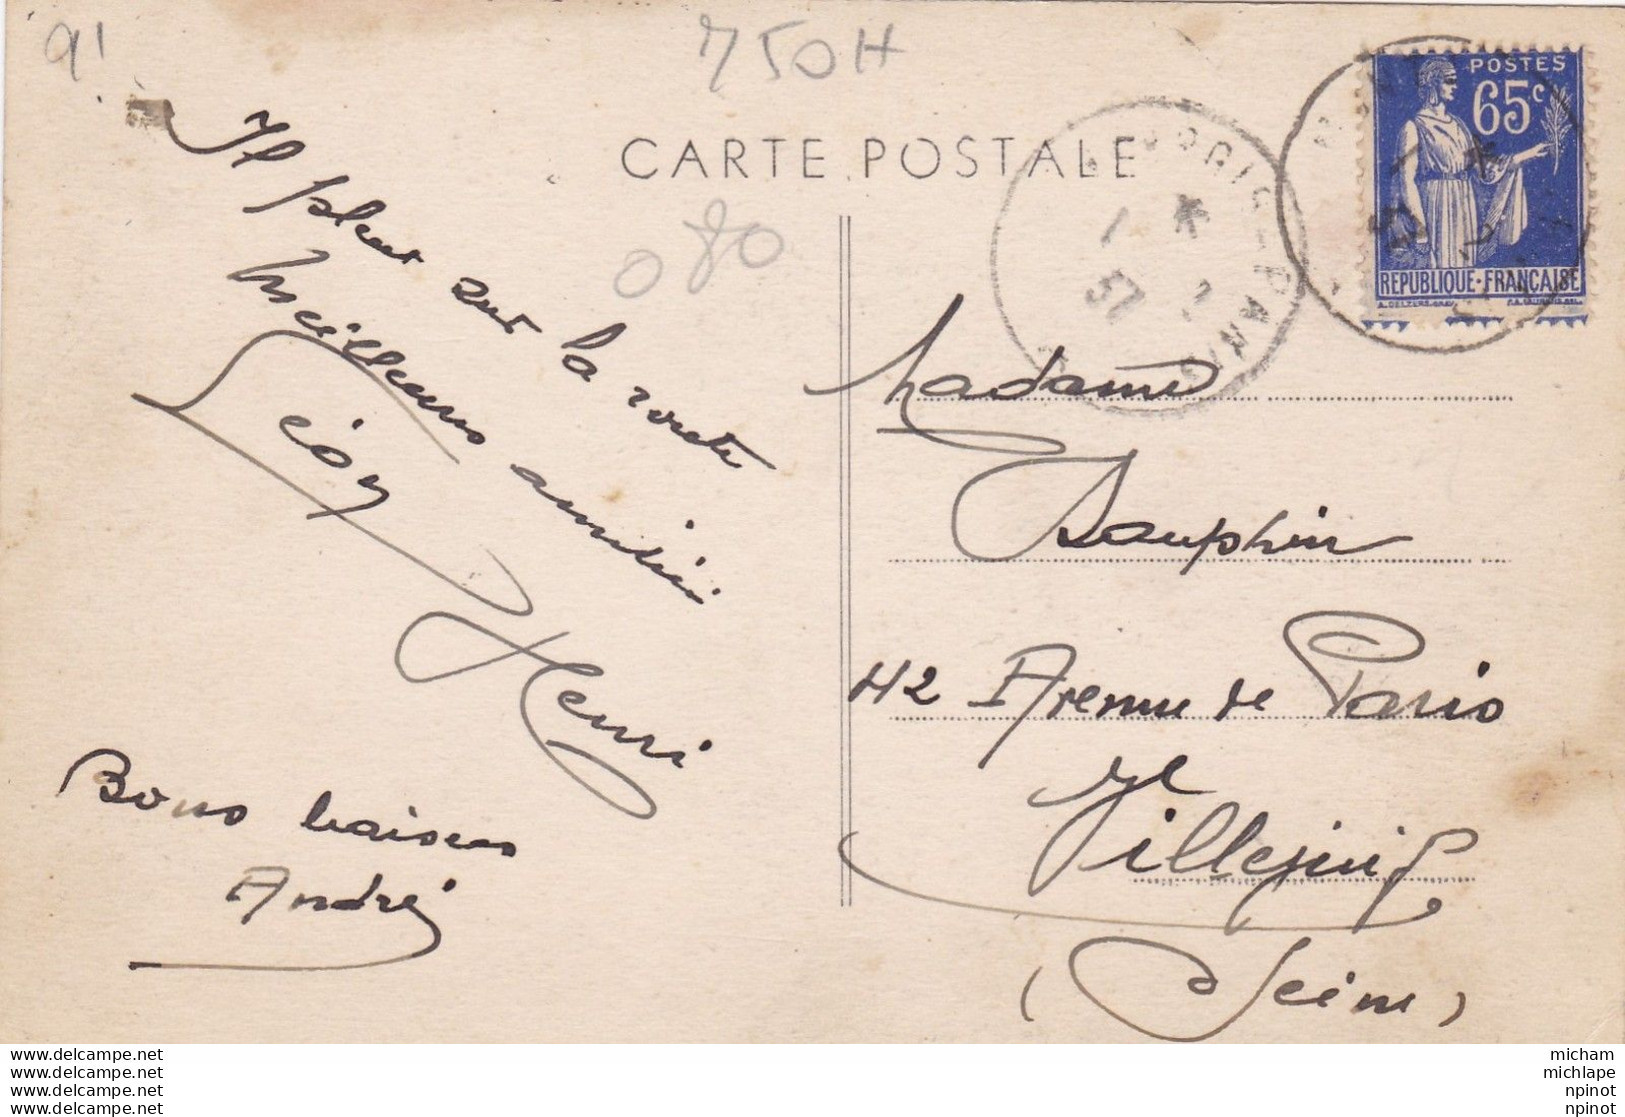 9!
750H
CARTE POSTALE
080
POSTES
65c
REPUBLIQUE-FRANÇAISE
Il pleut sur la route
Meilleures amitiés
Léon
Henri
Bons baisers
André
Madame
Dauphin
42 Avenue de Paris
Villejuif
(Seine)
www.delcampe.net
www.delcampe.net
www.delcampe.net
www.delcampe.net
micham
michlape
npinot
npinot